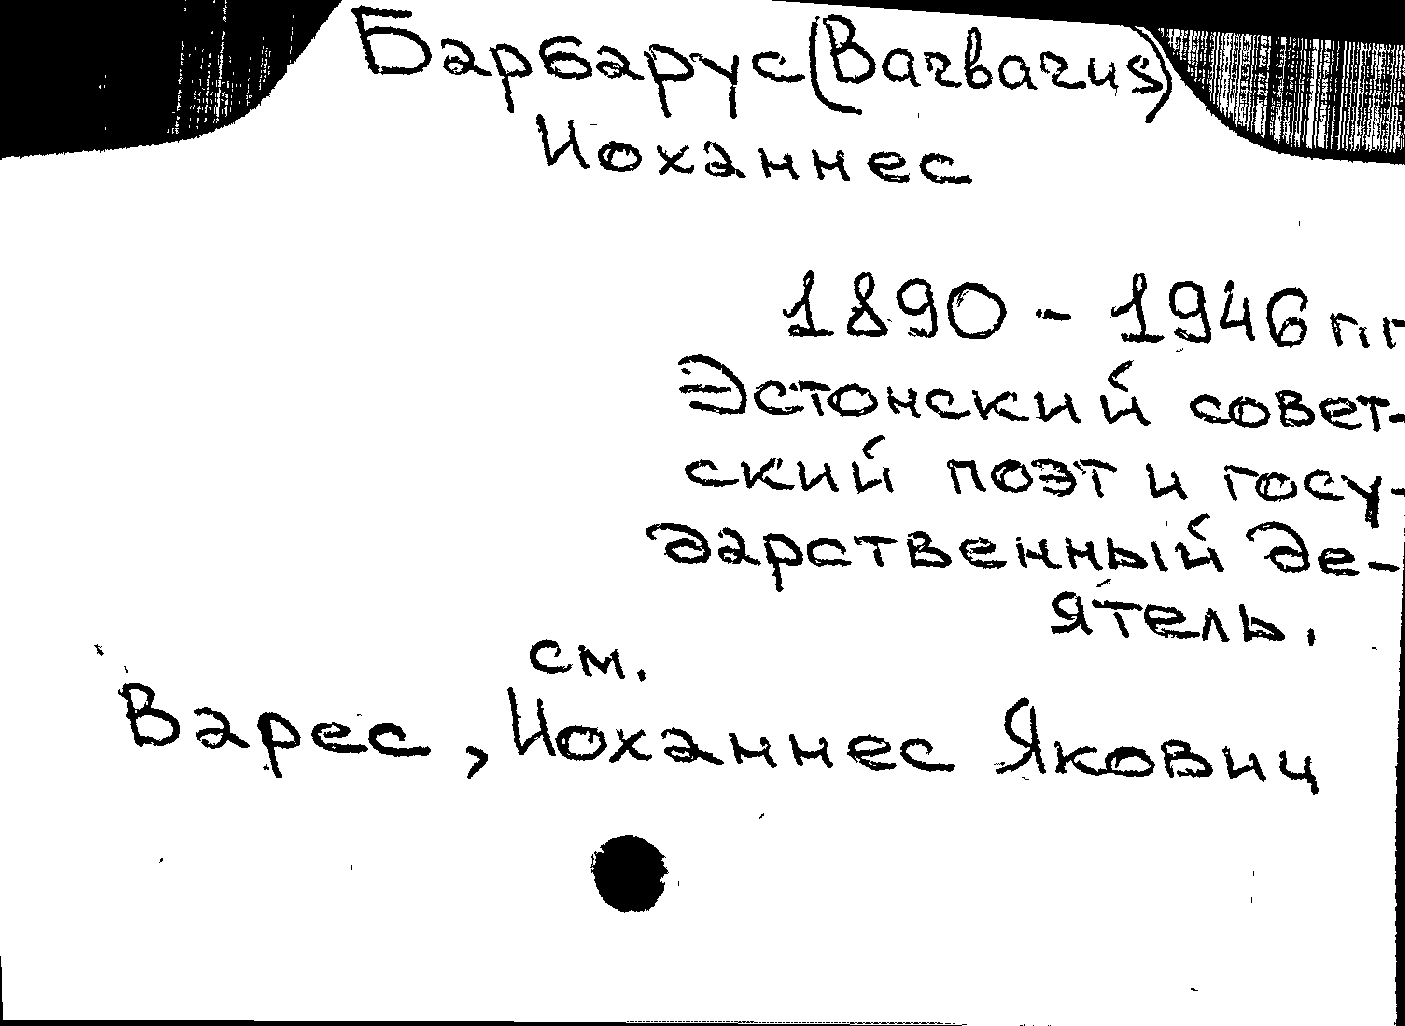 Барбарус (Barbarus)
Иоханнес
1890 - 1946 гг
Эстонский совет-
ский поэт и госу-
дарственный де-
ятель.
см.
Варес, Иоханнес Якович